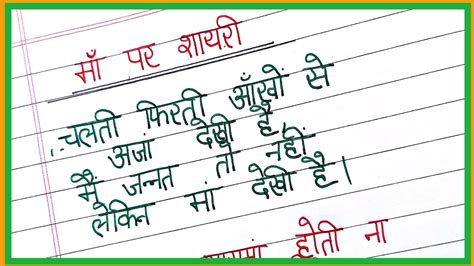 माँ पर शायरी
चलती फिरती आँखों से
अजां देखी है,
मैं जन्नत तो नहीं
लेकिन मां देखी है।
होती ना